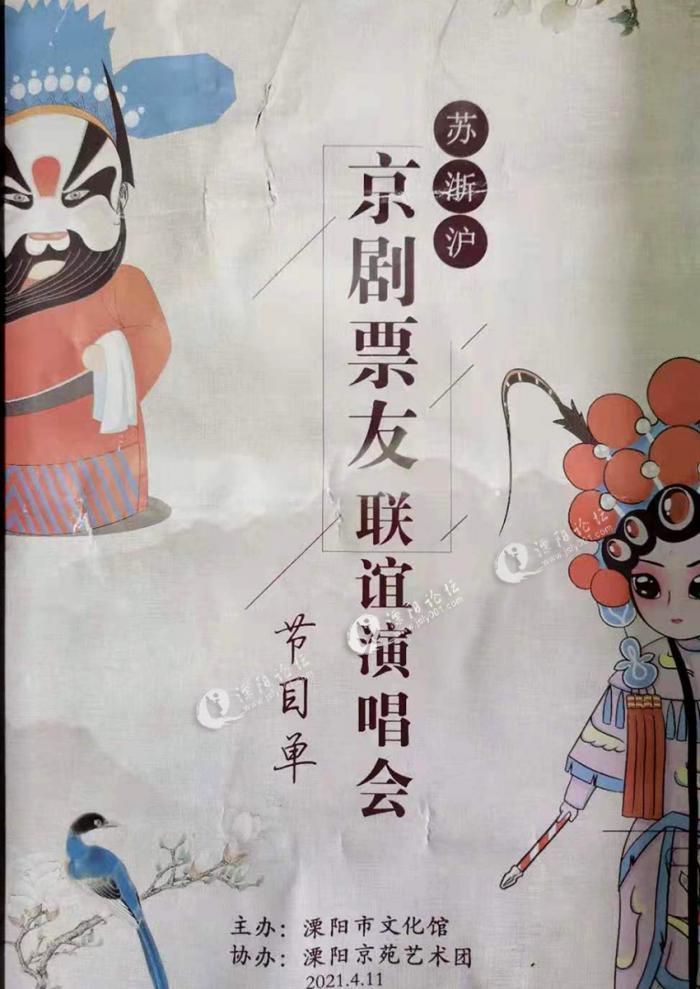 苏浙沪
京剧票友联谊演唱会
节目单
溧阳论坛
www.jsly001.com
溧阳论坛
www.jsly001.com
溧阳论坛
www.jsly001.com
主办：溧阳市文化馆
协办：溧阳京苑艺术团
2021.4.11